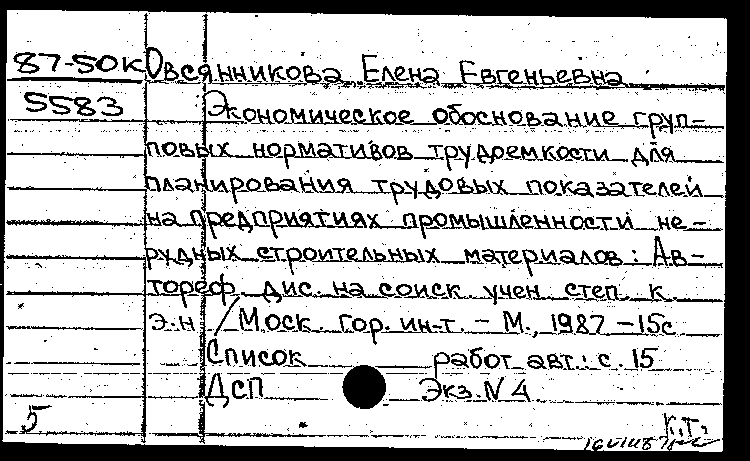 87-50к Овсянникова Елена Евгеньевна
5583 Экономическое обоснование груп-
повых нормативов трудоемкости для
планирования трудовых показателей
на предприятиях промышленности не-
рудных строительных материалов: Ав-
тореф. дис. на соиск. учен. степ. к.
э.н / Моск. гор. ин-т. - М., 1987 - 15с
Список работ авт.: с. 15
ДСП Экз. N 4
5 К.Т.